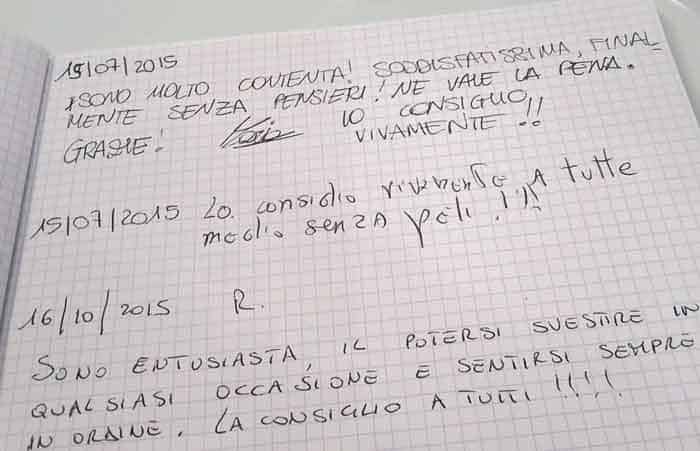 15/07/2015
SONO MOLTO CONTENTA! SODDISFATISSIMA, FINAL-
MENTE SENZA PENSIERI! NE VALE LA PENA.
GRAZIE! LO CONSIGLIO
VIVAMENTE!!
15/07/2015 Lo consiglio vivamente A tutte
meglio senza peli!!!
16/10/2015 R.
SONO ENTUSIASTA, IL POTERSI SVESTIRE IN
QUALSIASI OCCASIONE E SENTIRSI SEMPRE
IN ORDINE. LA CONSIGLIO A TUTTI!!!!